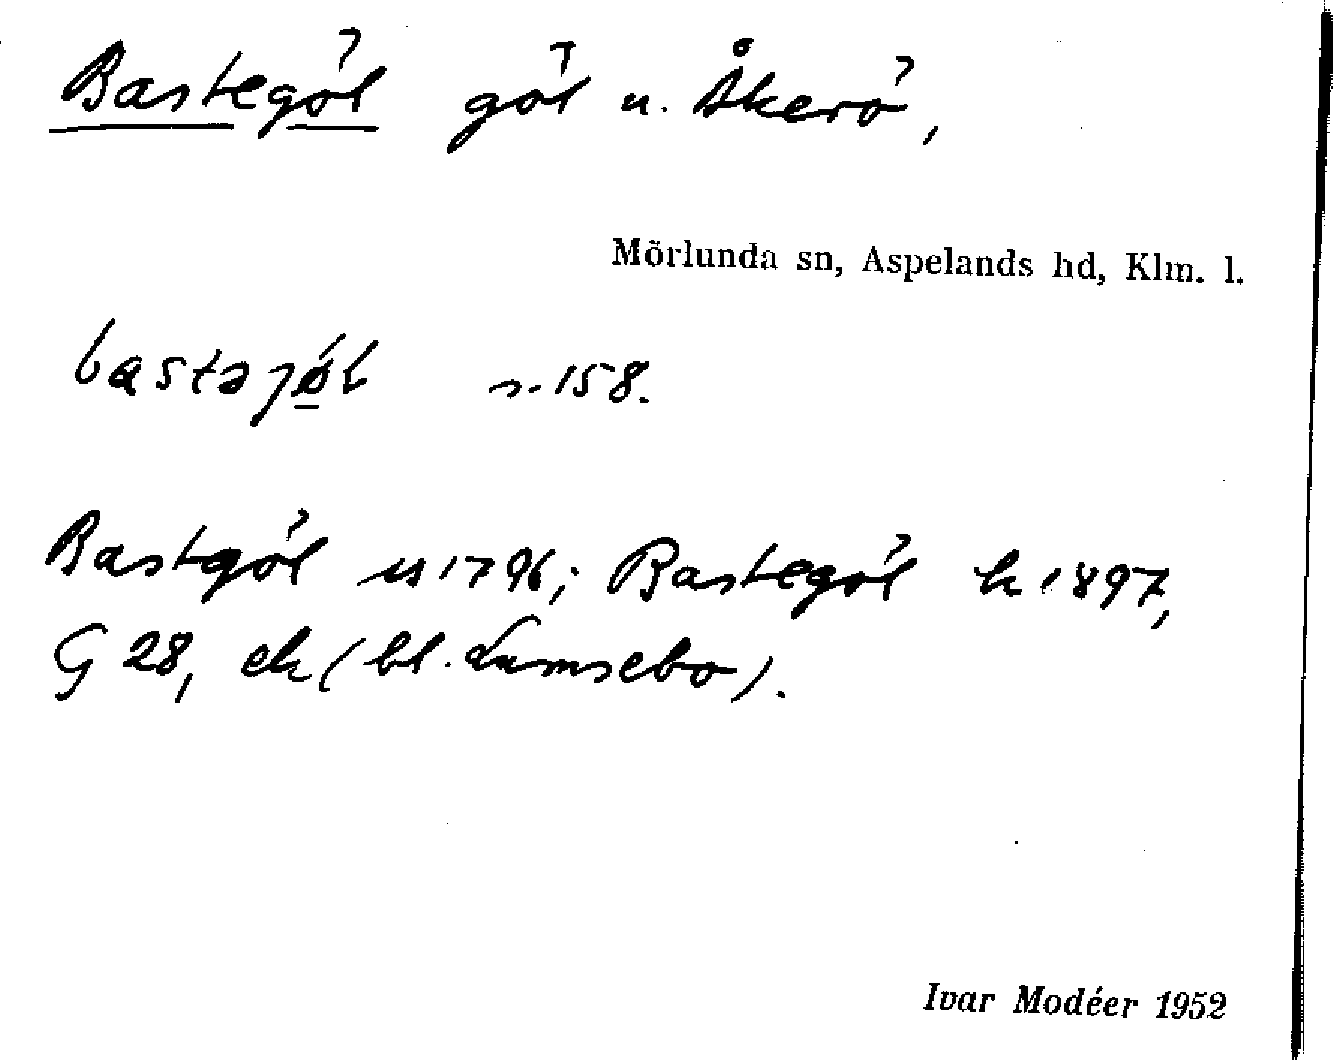 Bastegöl göl u. Åkerö,
Mörlunda sn, Aspelands hd, Klm. l.
bastəjǿ̱l s. 158.
Bastgöl us 1796; Bastegöl k 1897,
G 28, ek (bl. Lumsebo).
Ivar Modéer 1952